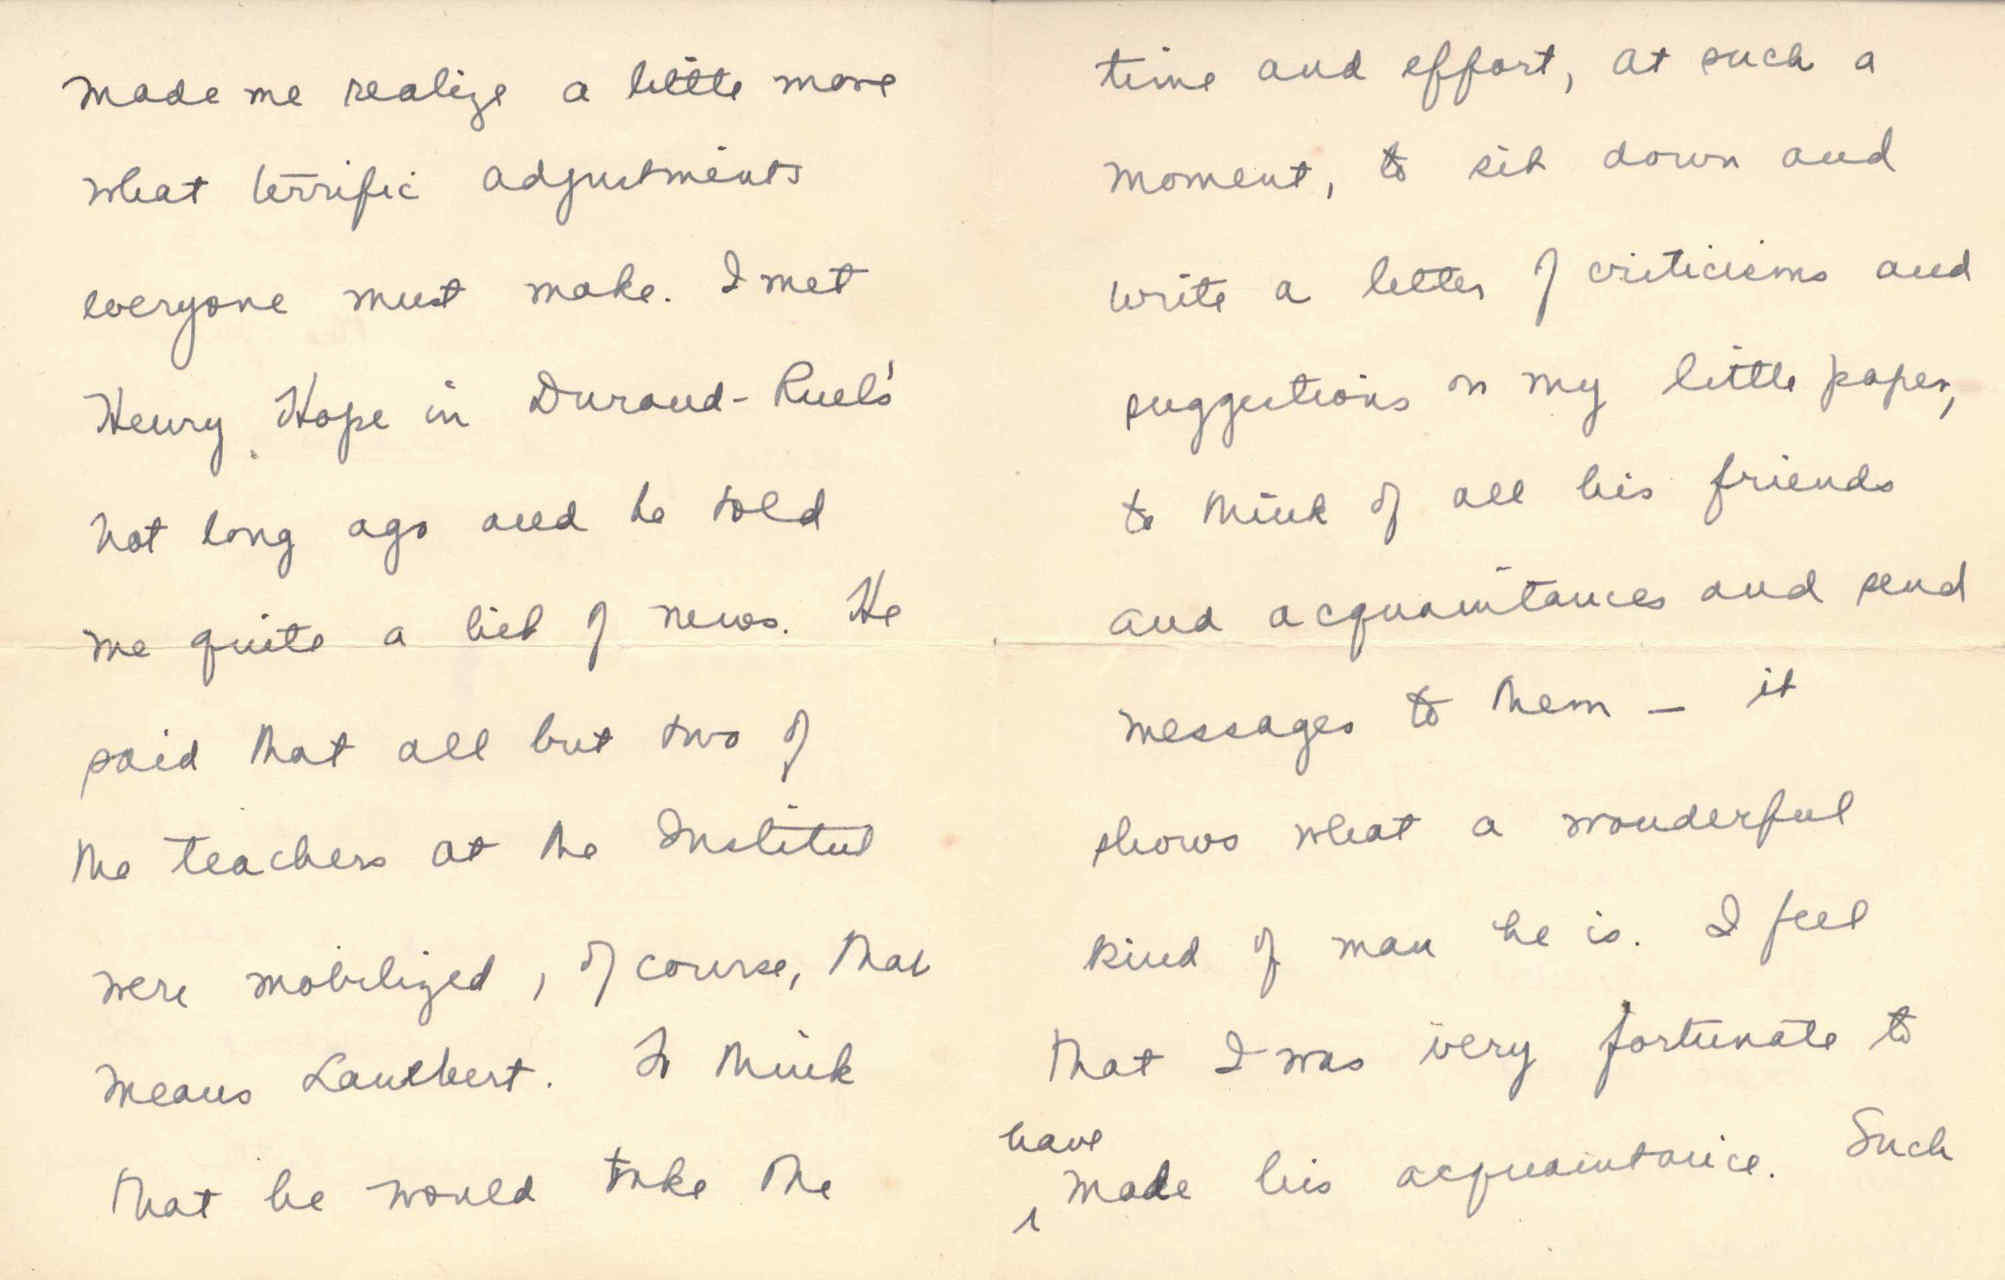 made me realize a little more
what terrific adjustments
everyone must make. I met
Henry Hope in Durand-Ruel's
not long ago and he told
me quite a bit of news. He
said that all but two of
the teachers at the Institut
were mobilized, of course, that
means Lambert. To think
that he would take the
time and effort, at such a
moment, to sit down and
write a letter of criticisms and
suggestions on my little paper,
to think of all his friends
and acquaintances and send
messages to them — it
shows what a wonderful
kind of man he is. I feel
that I was very fortunate to
have
made his acquaintance. Such